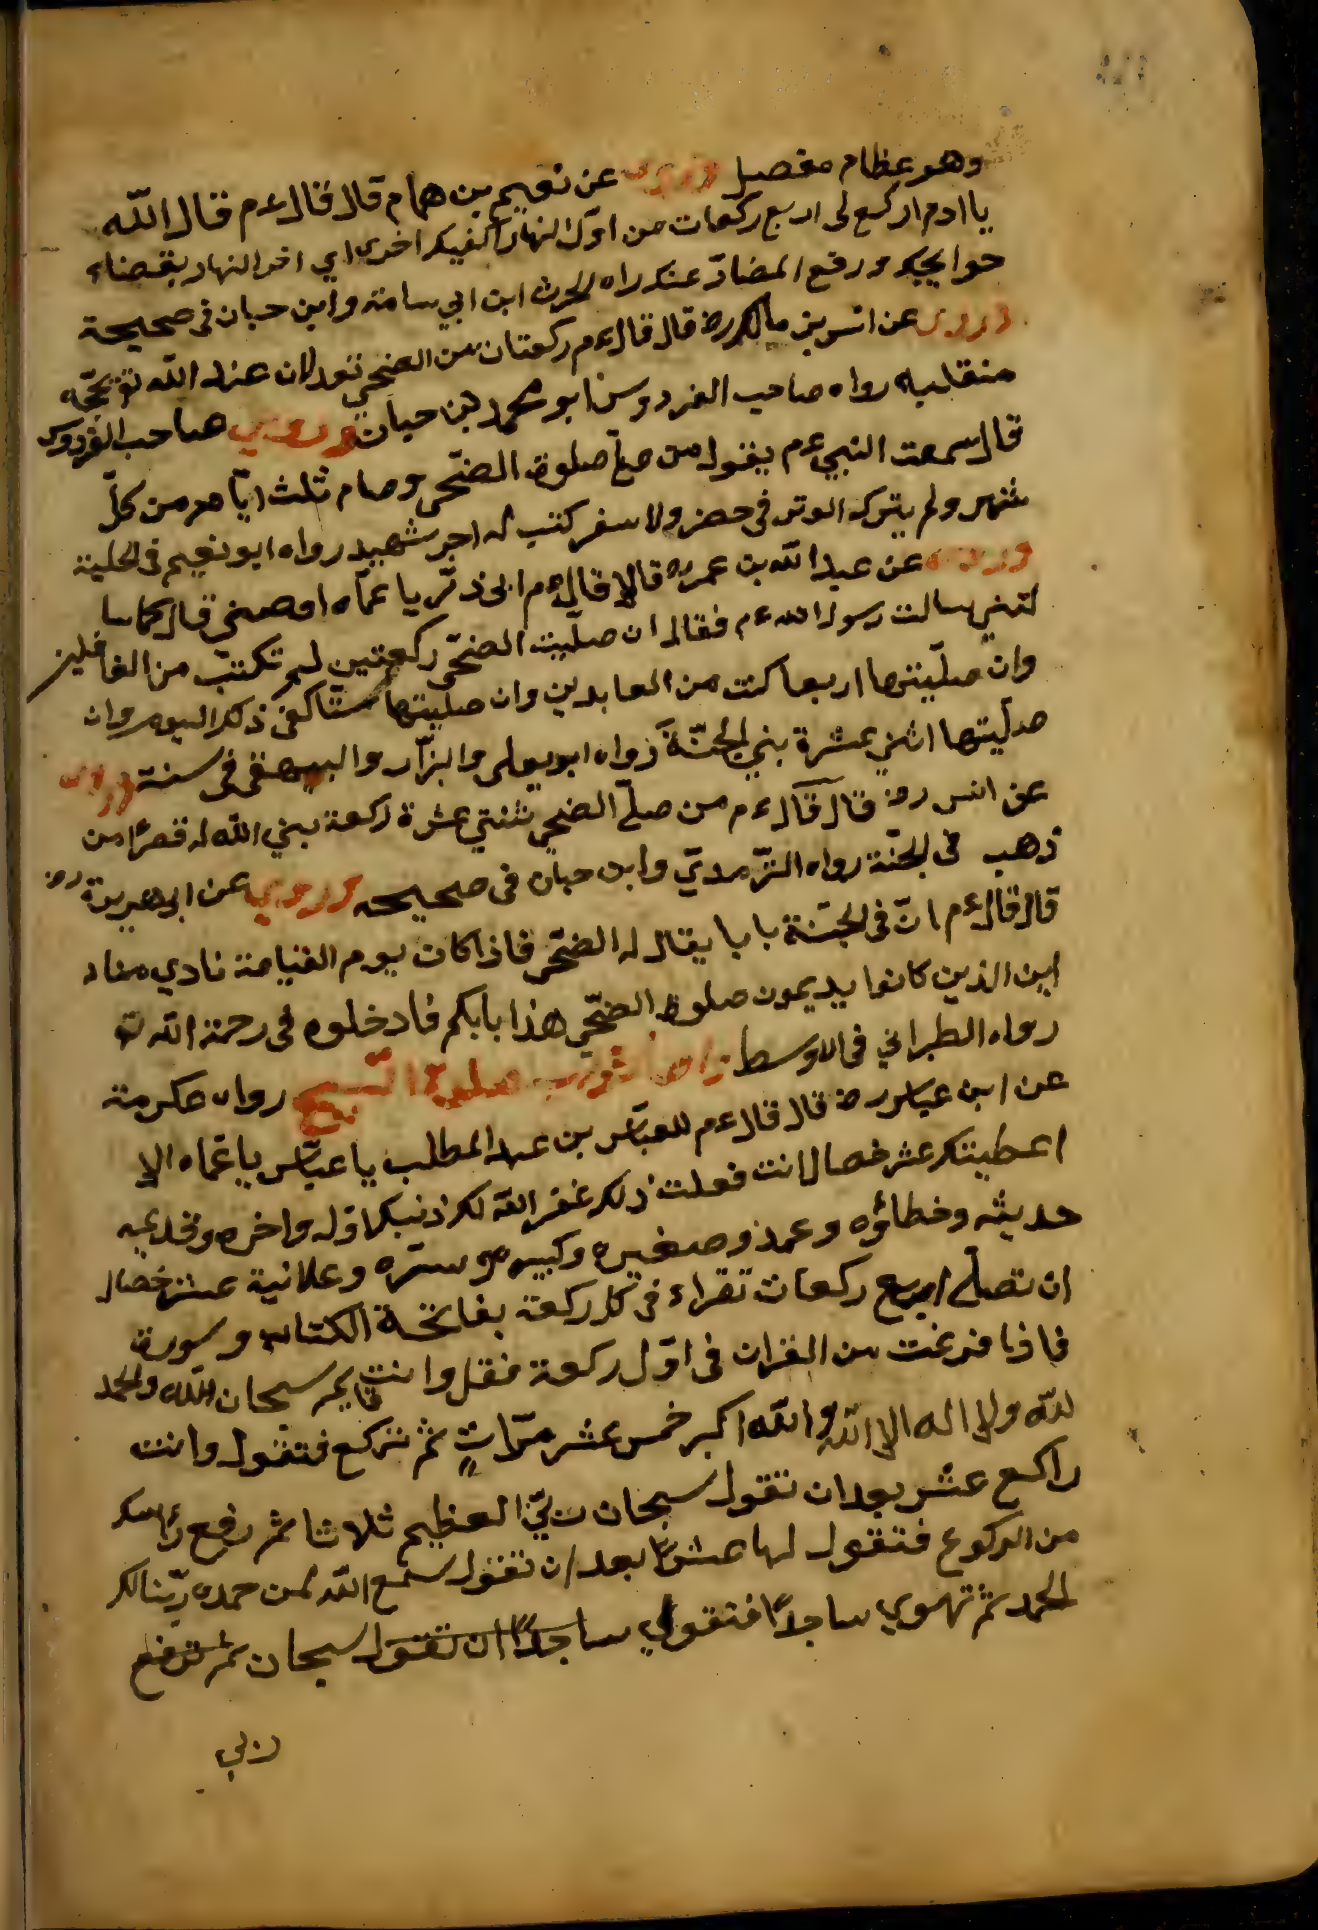 وهو عظام مفصل وروى عن نعيم بن همام قال قال ءم قال الله
يا ادم اركع لى اربع ركعات من اوّل النهار اكفيك اخره اي اخر النهار بقضاء
حوايجك ورفع المضارّ عنك راه الحرث ابن ابي سامة وابن حبان فى صحيحة
وروى عن انس بن مالك رض قال قال ءم ركعتان من الضحى تعدلان عند الله تع بحجّه
متقلبه رواه صاحب الفردوس ابو محمد بن حبان وروى صاحب الفردوس
قال سمعت النبي ءم يقول من صلّ صلوة الضحّى وصام ثلث ايّام من كلّ
شهر ولم يترك الوتر فى حضر ولا سفر كتب له اجر شهيد رواه ابو نعيم فى الحلية
وروى عن عبد الله بن عمر رض قال قال ءم ابى ذرّ يا عمّاه اوصني قال كما سا
لتني سالت رسول الله ءم فقال ان صلّيت الضحّى ركعتين لم تكتب من الغافلين
وان صلّيتها اربعا كنت من العابدين وان صليتها ستّا كفى ذلك اليوم وان
صلّيتها اثني عشرة بني الجنّة رواه ابو يعلى والبزّار والبيهقى فى سنة وروى
عن انس رض قال قال ءم من صلّ الضحى ثنتي عشرة ركعة بني الله له قصرًا من
ذهب فى الجنّة رواه الترّمديّ وابن حبان فى صحيحه وروى عن ابى هريرة رض
قال قال ءم انّ فى الجنّة بابا يقال له الضحّى فاذا كان يوم القيامة نادي مناد
اين الذين كانوا يديمون صلوة الضحّى هذا بابكم فادخلوه فى رحمة الله تع
رواه الطبراني فى الاوسط واما ثواب صلوة التسبيح رواه عكرمة
عن ابن عباس رض قال قال ءم للعبّاس بن عبد المطلب يا عبّاس يا عمّاه الا
اعطيتك عشر خصال انت فعلت ذلك غفر الله لك ذنبك اوله واخره وقديمه
حديثه وخطاؤه وعمد وصغيره وكبيره وسرّه وعلانية عشر خصال
ان تصلّى اربع ركعات تقراء فى كل ركعة بفاتحة الكتاب وسورة
فاذا فرغت من القران فى اوّل ركعة فقل وانت قايم سبحان الله والحمد
لله ولا اله الا الله والله اكبر خمس عشر مرّاتٍ ثم تركع فتقول وانت
راكع عشر بعد ان تقول سبحان ربّي العظيم ثلاثا ثم رفع رأسك
من الركوع فتقول لها عشرًا بعد ان تقول سمع الله لمن حمده ربّنا لك
الحمد ثم تهوي ساجدًا فتقول ساجدًا ان تقول سبحان ثم ترفع
ربي